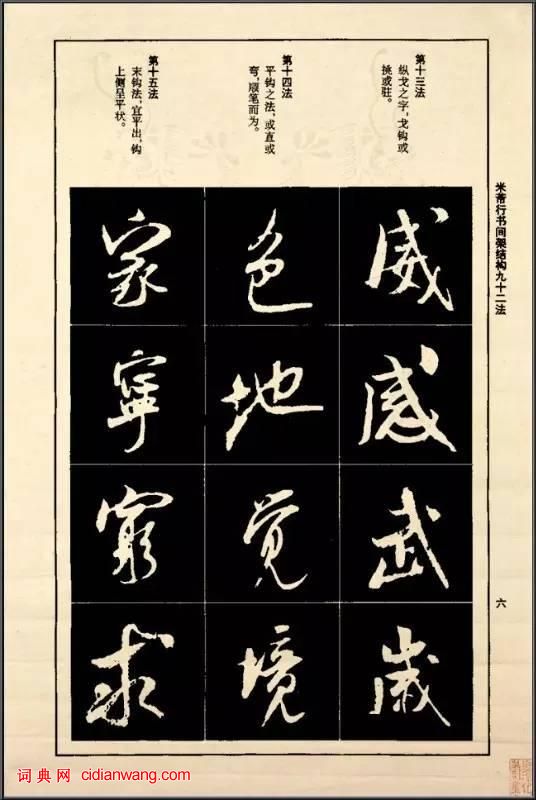 米芾行书间架结构九十二法
六
第十三法
纵戈之字，戈钩或
挑或驻。
第十四法
平钩之法，或直或
弯，顺笔而为。
第十五法
末钩法，宜平出，钩
上侧呈平状。
威感武歲
色地觉境
家寧窮求
词典网 cidianwang.com